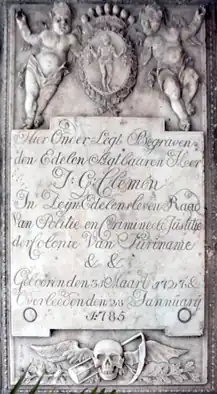 Hier Onder Legt Begraven
den Edelen Agtbaaren Heer
J: G: Clemen
In Zeijn Edelens leven Raad
Van Politie en Crimineele Justitie
der Colonie Van Suriname
& &
Gebooren den 31 Maart 1723 &
Overleeden den 28 Jannuary
1785